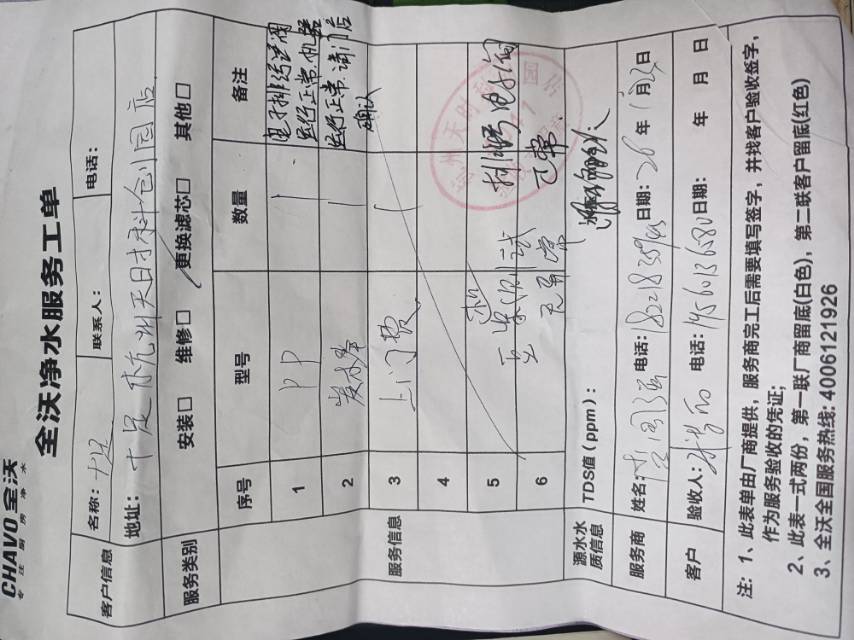 CHAVO全沃
专注厨房净水
全沃净水服务工单
客户信息 名称: 十足 联系人: 电话:
地址: 十足 杭州天目才科创园店
服务类别 安装□ 维修□ 更换滤芯□ 其他□
服务信息 序号 型号 数量 备注
1 PP 1
运行正常.机器
2 1 运行正常.请门店
确认
3 上门费 1
4
5 电磁阀
6 无异常 正常.
源水水质信息 TDS值(ppm):
服务商 姓名: 李周强 电话: 日期: 26年1月23日
客户 验收人: 电话: 19560136580 日期: 年 月 日
注: 1、此表单由厂商提供，服务商完工后需要填写签字，并找客户验收签字，
作为服务验收的凭证;
2、此表一式两份，第一联厂商留底(白色)，第二联客户留底(红色)
3、全沃全国服务热线: 4006121926